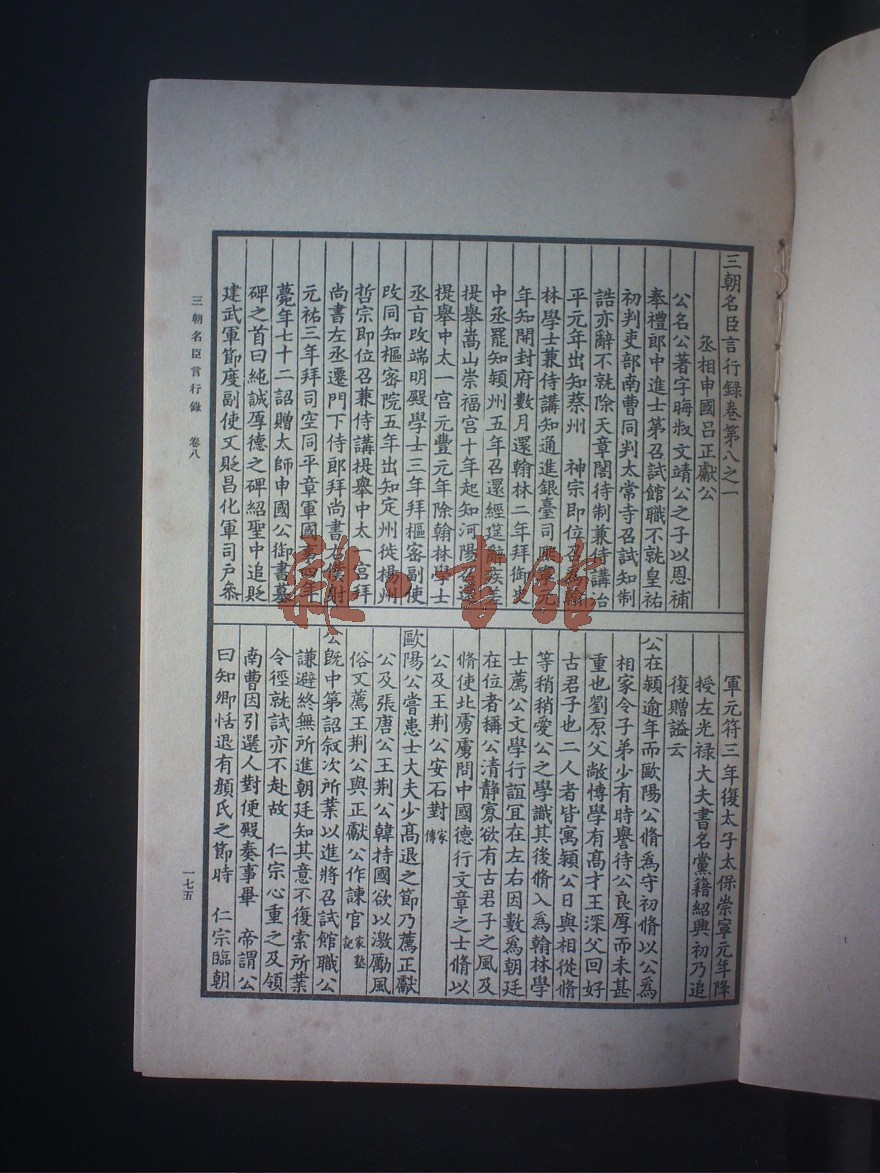 三朝名臣言行錄卷第八之一
丞相申國呂正獻公
公名公著字晦叔文靖公之子以恩補
奉禮郎中進士第召試館職不就皇祐
初判吏部南曹同判太常寺召試知制
誥亦辭不就除天章閣待制兼侍講治
平元年出知蔡州 神宗即位召為翰
林學士兼侍講知通進銀臺司熙寧元
年知開封府數月還翰林二年拜御史
中丞罷知潁州五年召還經筵辭疾
提舉嵩山崇福宮十年起知河陽召還
提舉中太一宮元豐元年除翰林學士
丞旨改端明殿學士三年拜樞密副使
改同知樞密院五年出知定州徙楊州
哲宗即位召兼侍講提舉中太一宮拜
尚書左丞遷門下侍郎拜尚書右僕射
元祐三年拜司空同平章軍國事四年
薨年七十二詔贈太師申國公御書墓
碑之首曰純誠厚德之碑紹聖中追貶
建武軍節度副使又貶昌化軍司戶叅
軍元符三年復太子太保崇寧元年降
授左光祿大夫書名黨籍紹興初乃追
復贈謚云
公在潁逾年而歐陽公脩為守初脩以公為
相家令子弟少有時譽待公良厚而未甚
重也劉原父敞博學有高才王深父回好
古君子也二人者皆寓潁公日與相從脩
等稍稍愛公之學識其後脩入為翰林學
士薦公文學行誼宜在左右因數為朝廷
在位者稱公清靜寡欲有古君子之風及
脩使北虜虜問中國德行文章之士脩以
公及王荊公安石對 家傳
歐陽公嘗患士大夫少高退之節乃薦正獻
公及張唐公王荊公韓持國欲以激勵風
俗又薦王荊公與正獻公作諫官 家塾記
公既中第詔叙次所業以進將召試館職公
謙避終無所進朝廷知其意不復索所業
令徑就試亦不赴故 仁宗心重之及領
南曹因引選人對便殿奏事畢 帝謂公
曰知卿恬退有顏氏之節時 仁宗臨朝
三朝名臣言行錄 卷八
一七五
雜·書館